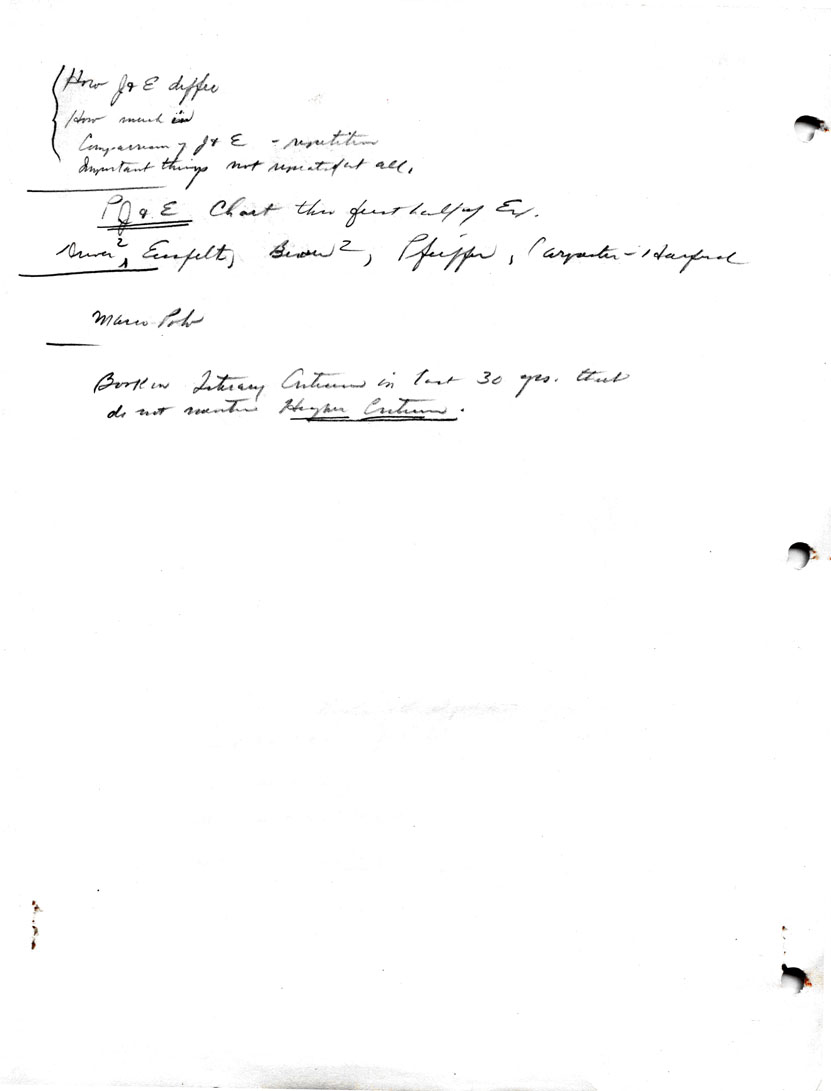 How J & E differ
How much in
Comparison of J & E - repetition
Important things not repeated at all.
PJ & E Chart thru first half of Ex.
Driver², Eissfeldt, Bewer², Pfeiffer, Carpenter-Harford
Marco Polo
Books in Literary Criticism in last 30 yrs. that
do not mention Higher Criticism.